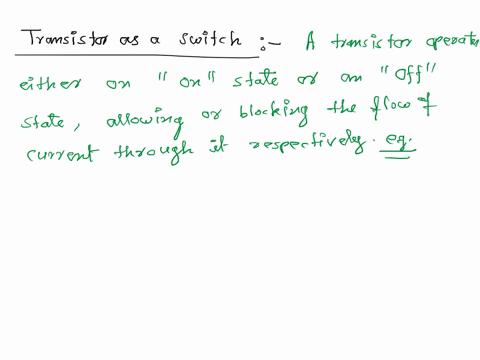 Transistor as a switch :- A transistor operate
either on "on" state or an "Off"
state, allowing or blocking the flow of
current through it respectively. eg.